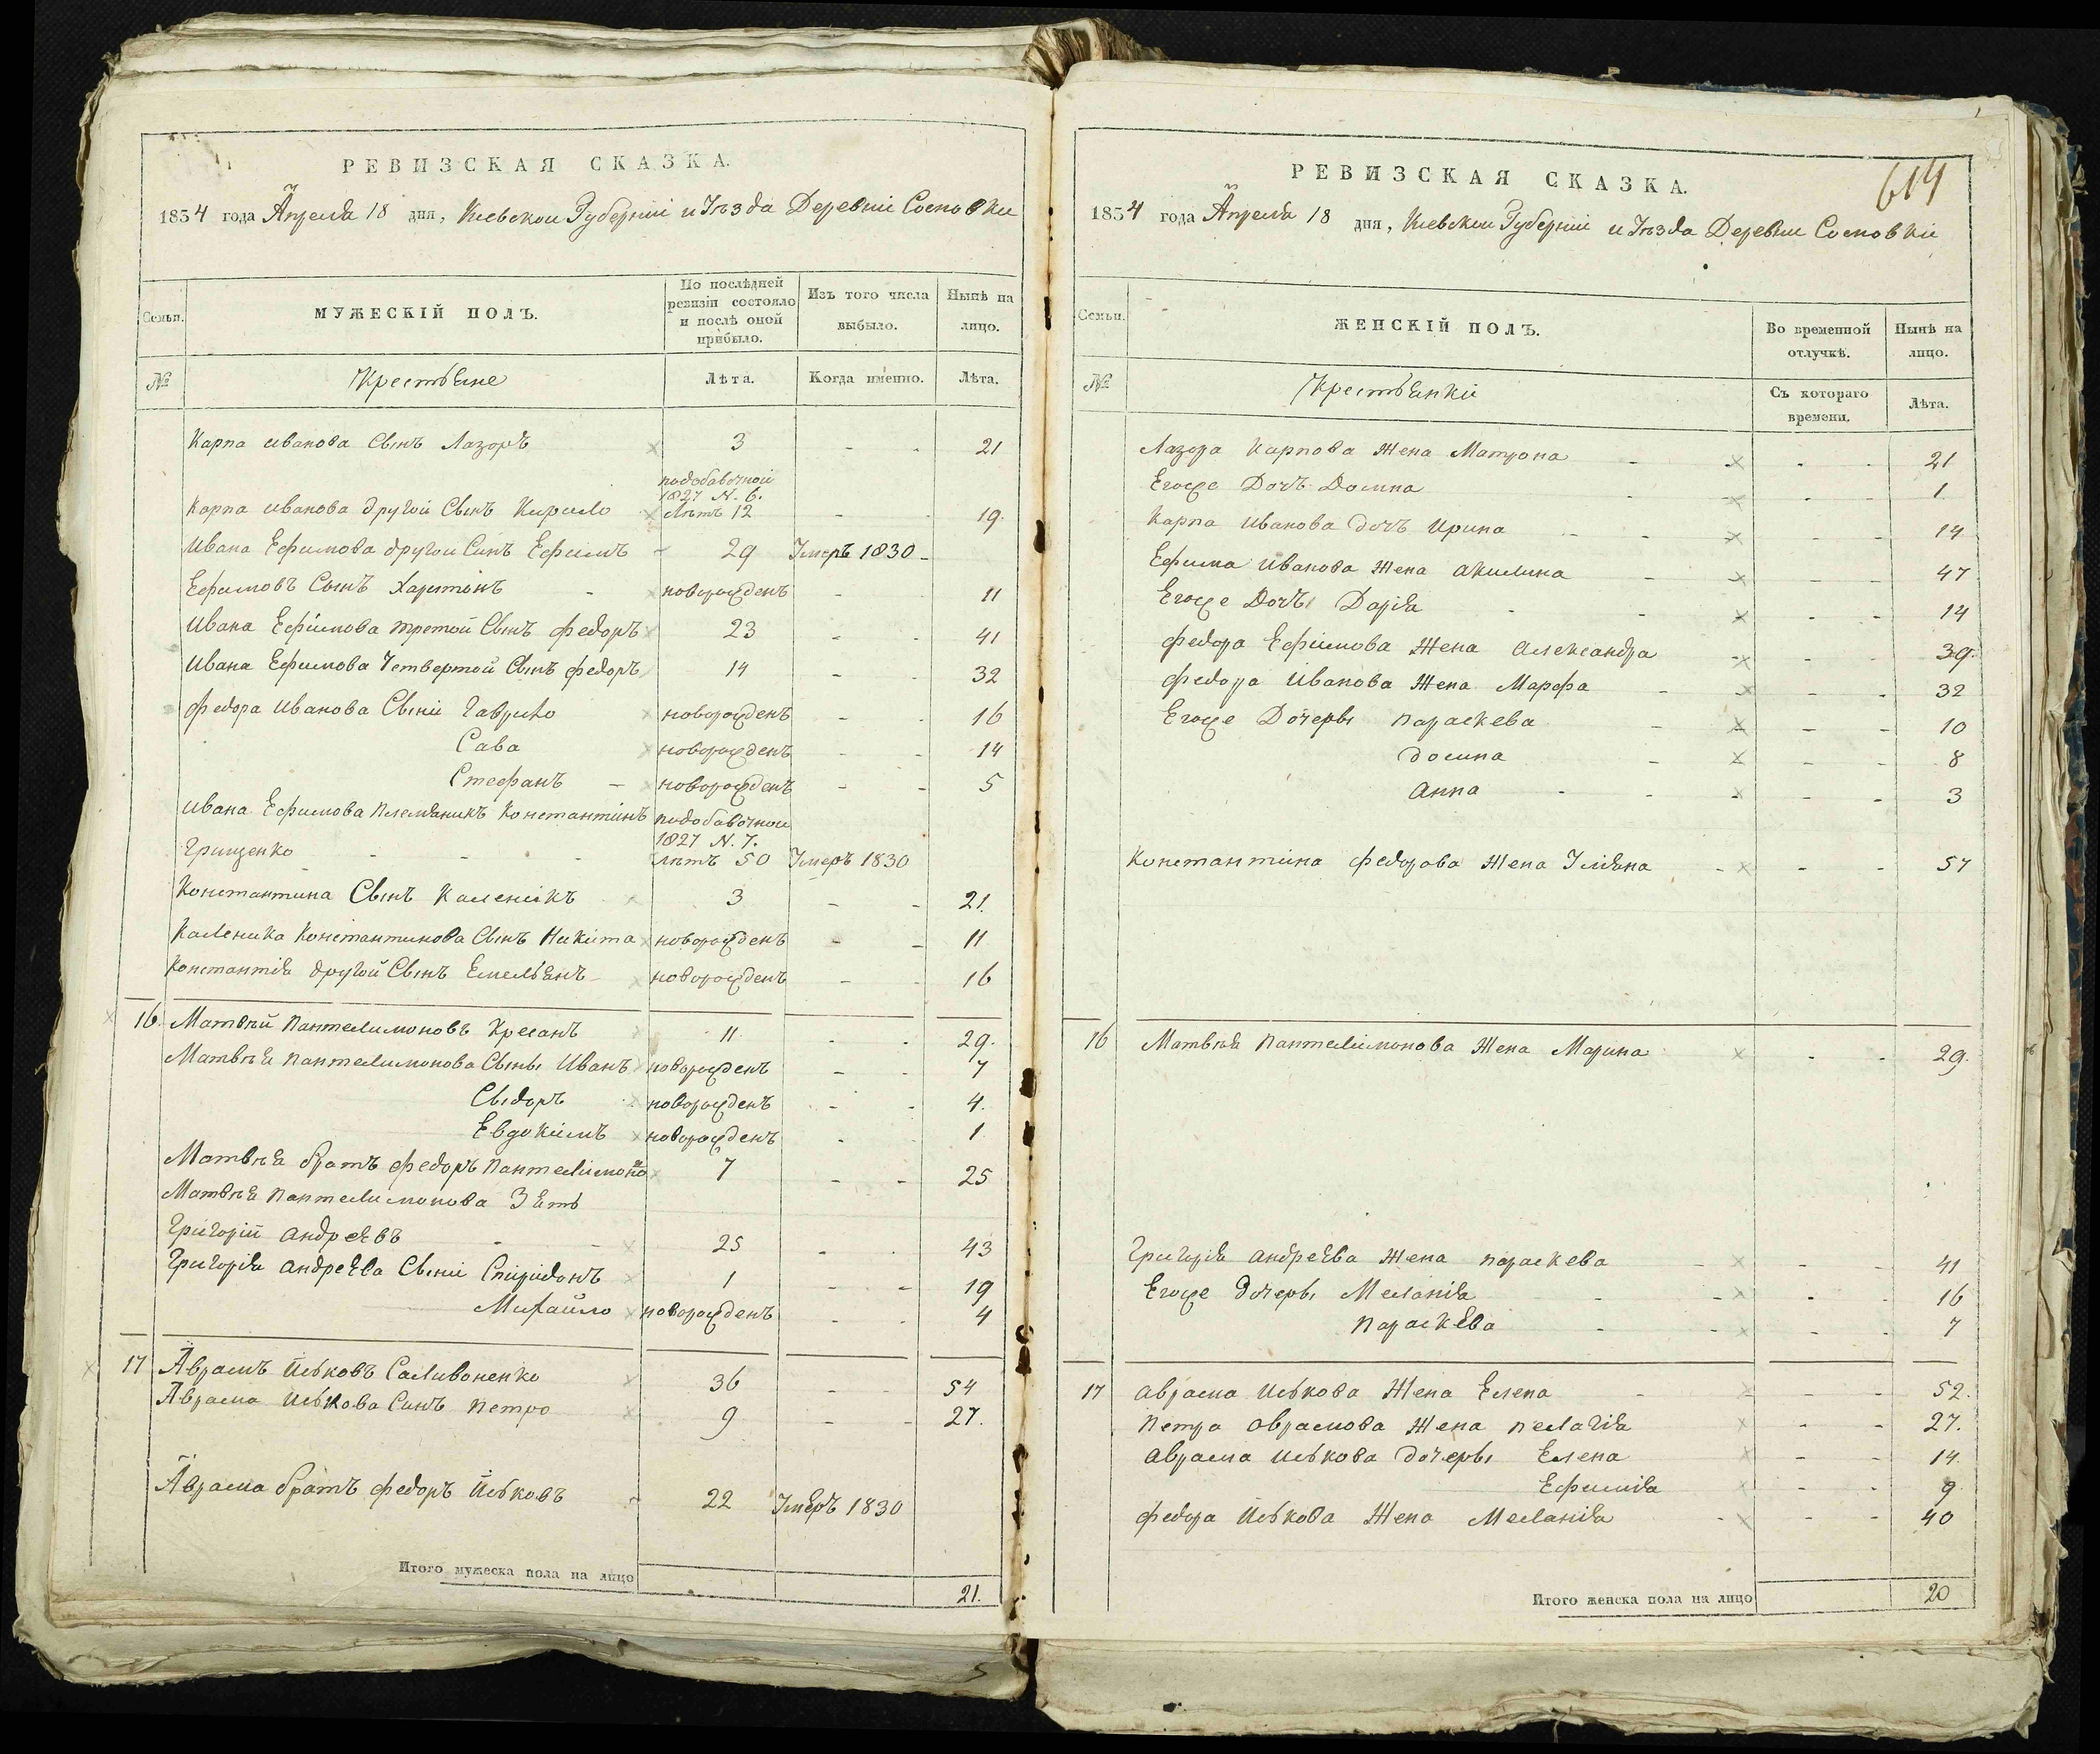 РЕВИЗСКАЯ СКАЗКА.
1834 года Апреля 18 дня, Киевской Губерніи и Уѣзда Деревни Сосновки
Семьи.
МУЖЕСКІЙ ПОЛЪ.
По послѣдней ревизіи состояло и послѣ оной прибыло.
Изъ того числа выбыло.
Нынѣ на лицо.
№
Крестьяне
Лѣта.
Когда именно.
Лѣта.
Карпа Иванова Сынъ Лазоръ 3 - - 21
подобавочной
1827 N. 6.
Карпа Иванова другой Сынъ Кирило Лѣтъ 12 - - 19.
Ивана Ефимова другои Синъ Ефимъ - 29 Умеръ 1830 -
Ефимовъ Сынъ Харитонъ - новорожденъ - - 11
Ивана Ефимова третой Сынъ федоръ 23 - - 41
Ивана Ефимова Четвертой Сынъ федоръ 14 - - 32
федора Иванова Сыни Гаврило новорожденъ - - 16
Сава новорожденъ - - 14
Стефанъ - новорожденъ - - 5
Ивана Ефимова Племяникъ Константинъ подобавочнои
1827 N. 7.
Грищенко - - - лѣтъ 50 Умеръ 1830
Константина Сынъ Каленикъ 3 - - 21.
Каленика Константинова Сынъ Никита новорожденъ - - 11
Константія другой Сынъ Емельянъ новорожденъ - - 16
16. Матвѣй Пантелимоновъ Кресанъ 11 - - 29.
Матвѣя Пантелимонова Сыны Иванъ новорожденъ - - 7
Сыдоръ новорожденъ - - 4.
Евдокимъ новорожденъ - - 1
Матвѣя братъ федоръ Пантелимоно 7 - - 25
Матвѣя Пантелимонова Зять
Григорій Андреевъ - - 25 - - 43
Григорія Андреева Сыни Спиридонъ 1 - - 19
Михайло новорожденъ - - 4
17 Аврамъ Иськовъ Саливоненко 36 - 54
Аврама Иськова Синъ Петро 9 - - 27.
Аврама братъ федоръ Иськовъ - 22 Умеръ 1830
Итого мужеска пола на лицо 21.
РЕВИЗСКАЯ СКАЗКА.
614
1834 года Апреля 18 дня, Киевскои Губерніи и Уѣзда Деревни Сосновки
Семьи.
ЖЕНСКІЙ ПОЛЪ.
Во временной отлучкѣ.
Нынѣ на лицо.
№
Крестьянки
Съ котораго времени.
Лѣта.
Лазора Карпова Жена Матрона - - - 21
Егоже Дочь Домна - - - 1
Карпа Иванова дочь Ирина - - - - 14
Ефима Иванова Жена Акилина - - - 47
Егоже Дочь Дарія - - - - 14
федора Ефимова Жена Александра - - - 39.
федора Иванова Жена Марфа - - - 32
Егоже Дочеры Параскева - - - 10
Домна - - - 8
Анна - - - - - 3
Константина федорова Жена Уліяна - - - 57
16 Матвѣя Пантелимонова Жена Марина - - 29.
Григорія Андреева Жена Параскева - - - 41
Егоже Дочеры Меланія - - - - 16
Параскева - - - - 7
17 Аврама Иськова Жена Елена - - - 52.
Петра Аврамова Жена Пелагія - - 27.
Аврама Иськова дочеры Елена - - 14.
Ефимія - - 9.
федора Иськова Жена Меланія - - - 40
Итого женска пола на лицо 20